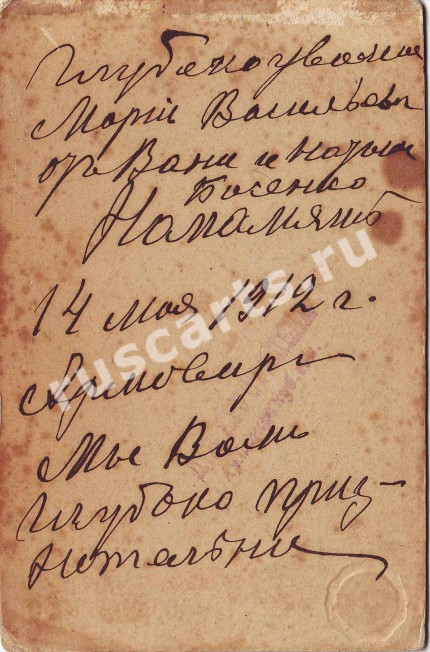 Глубокоуважае
Марiи Васильевн
отъ Вани и Наташи
Босенко
На память
14 мая 1912 г.
Армавиръ
Мы Вамъ
глубоко приз-
нательны
ruscarts.ru